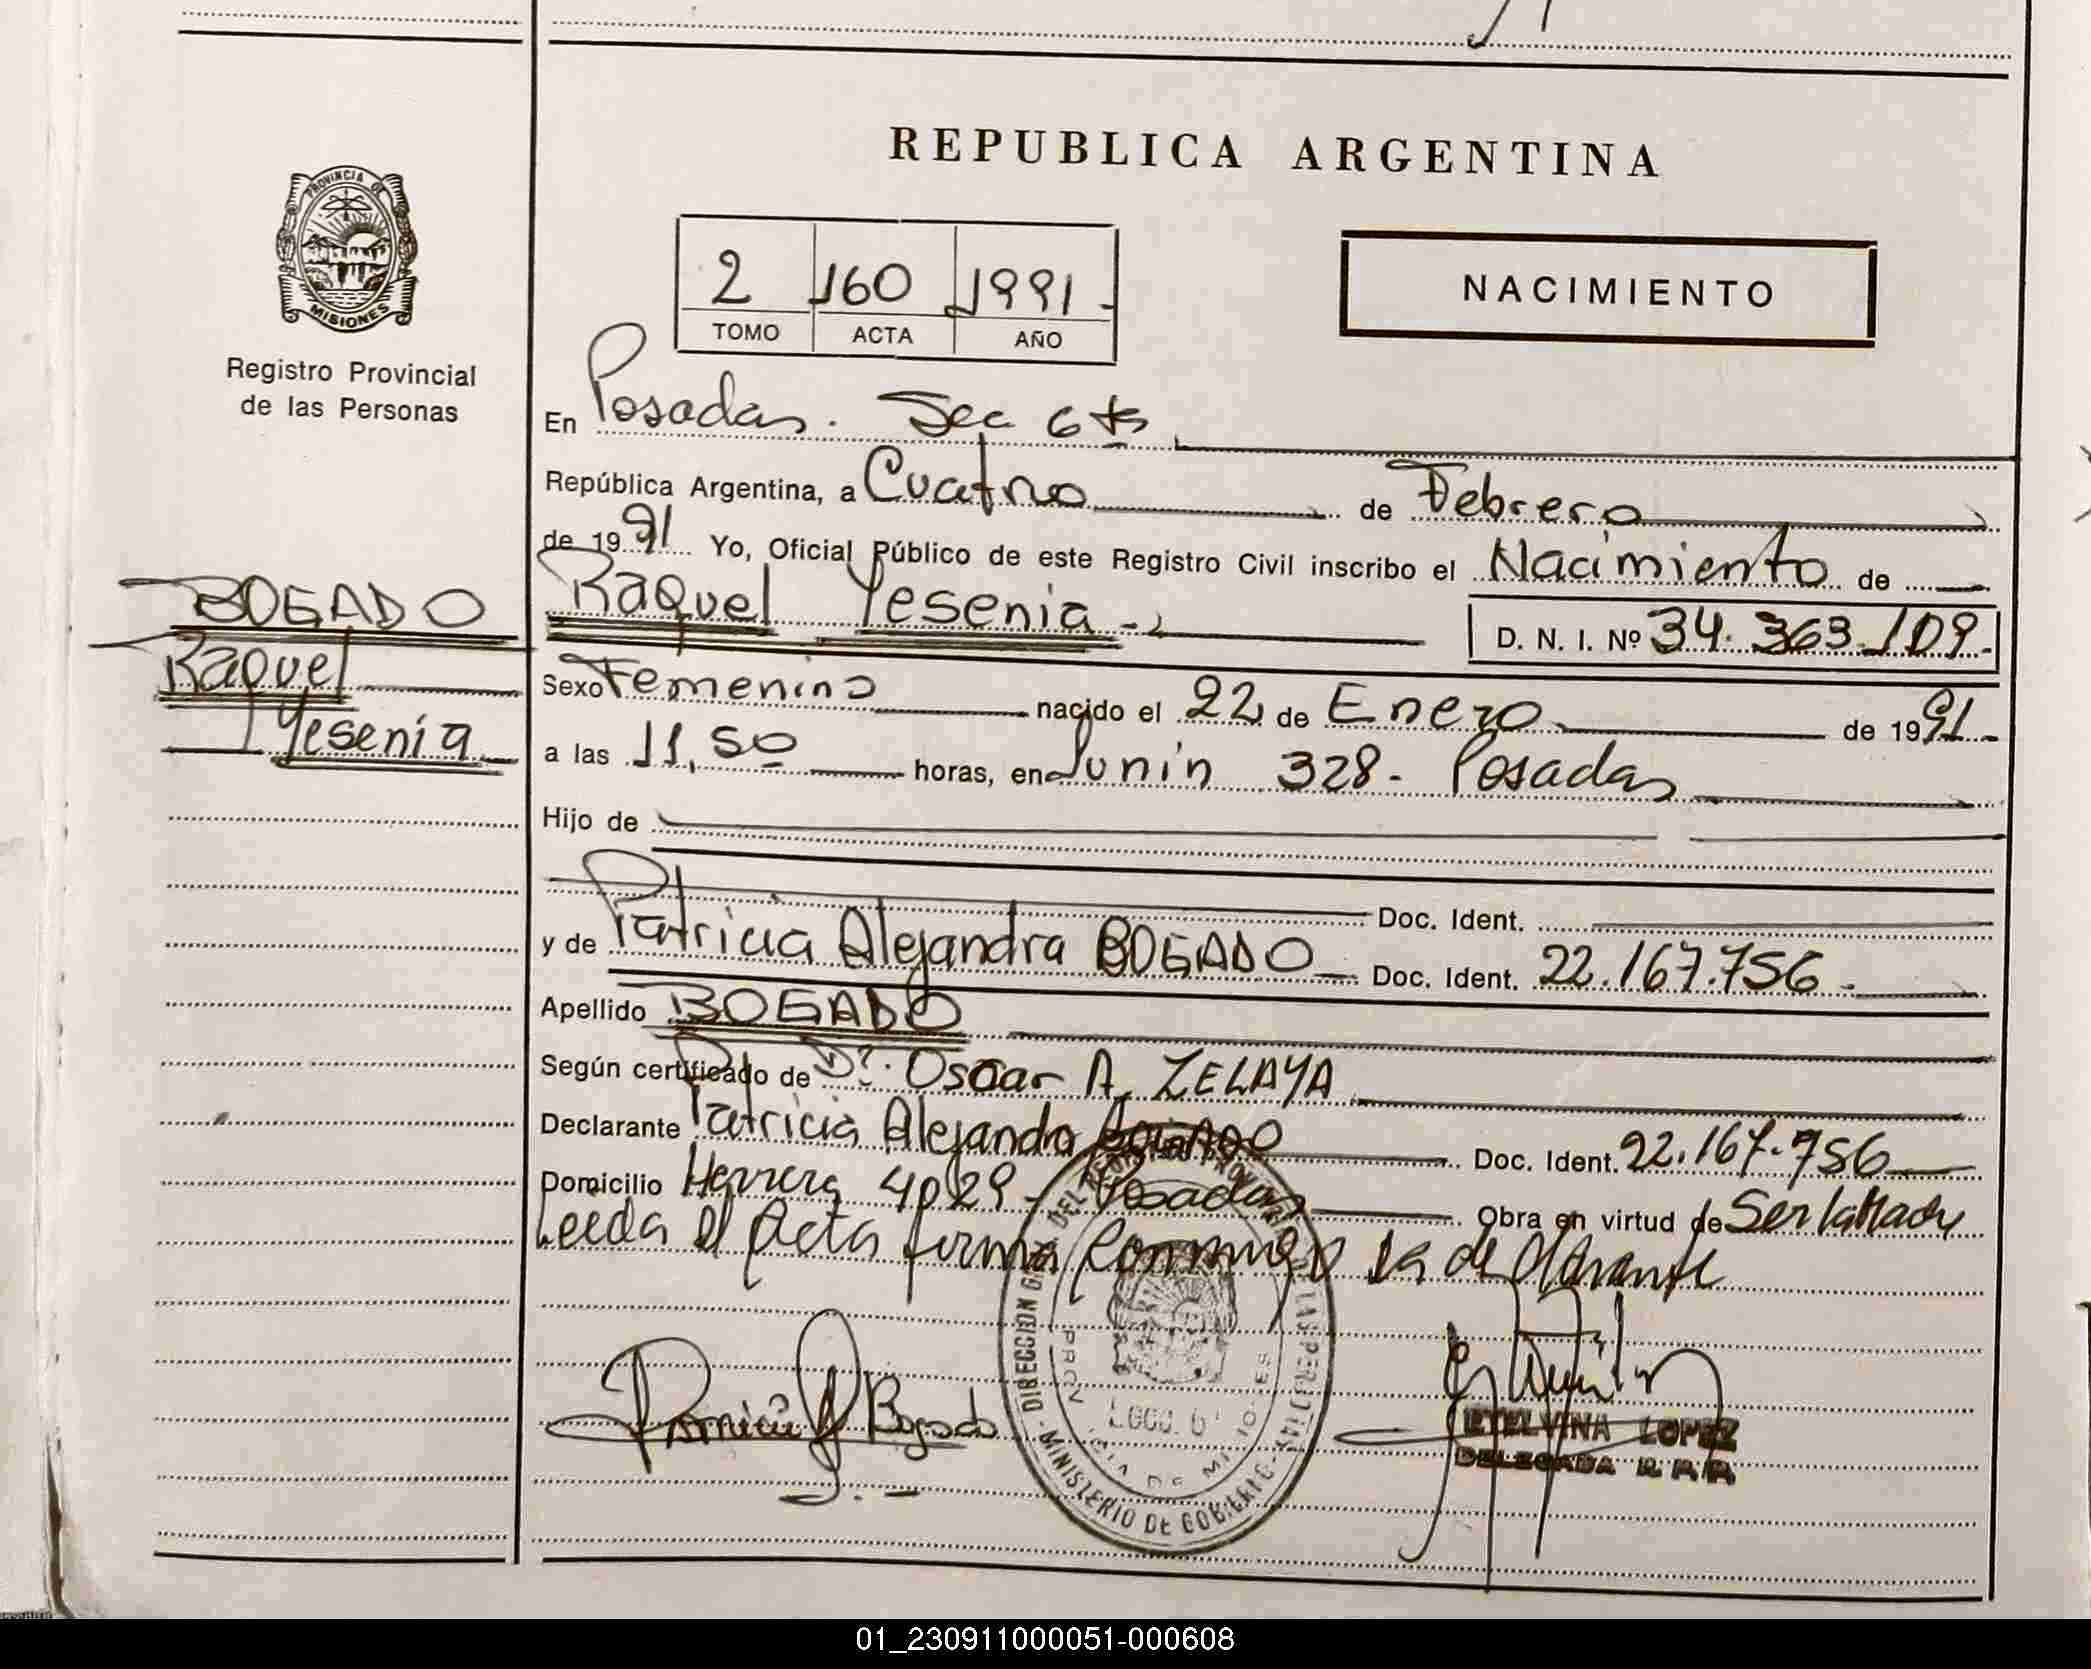 REPUBLICA ARGENTINA
PROVINCIA DE
MISIONES
Registro Provincial
de las Personas
2 160 1991.-
TOMO ACTA AÑO
NACIMIENTO
En Posadas. Sec 6ta
República Argentina, a Cuatro de Febrero
de 1991 Yo, Oficial Público de este Registro Civil inscribo el Nacimiento de
BOGADO
Raquel
Yesenia
Raquel Yesenia.- D. N. I. Nº 34.363.109.-
Sexo Femenino nacido el 22 de Enero de 1991.-
a las 11,50 horas, en Junín 328- Posadas
Hijo de
Doc. Ident.
y de Patricia Alejandra BOGADO Doc. Ident. 22.167.756.-
Apellido BOGADO
Según certificado de Dr. Oscar A. ZELAYA
Declarante Patricia Alejandra BOGADO Doc. Ident. 22.167.756
Domicilio Herrera 4029- Posadas Obra en virtud de Ser la Madre
Leida el Acta firma conmigo la declarante
Bogado
DIRECCION DEL REGISTRO PROVINCIAL DE LAS PERSONAS
MINISTERIO DE GOBIERNO
PROVINCIA DE MISIONES
ETELVINA LOPEZ
DELEGADA R.P.P.
01_230911000051-000608